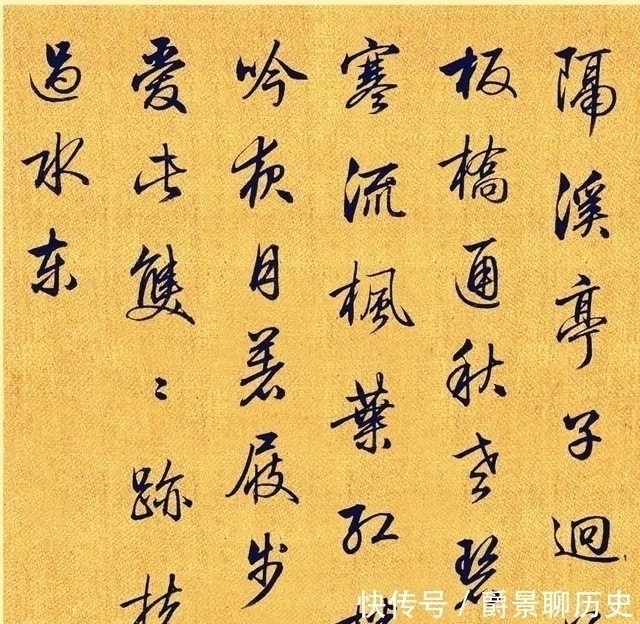 隔溪亭子迥
板橋通秋老碧
寒流楓葉红
吟夜月着屐步
愛此雙〻跡扶
過水东
快传号 / 爵景聊历史